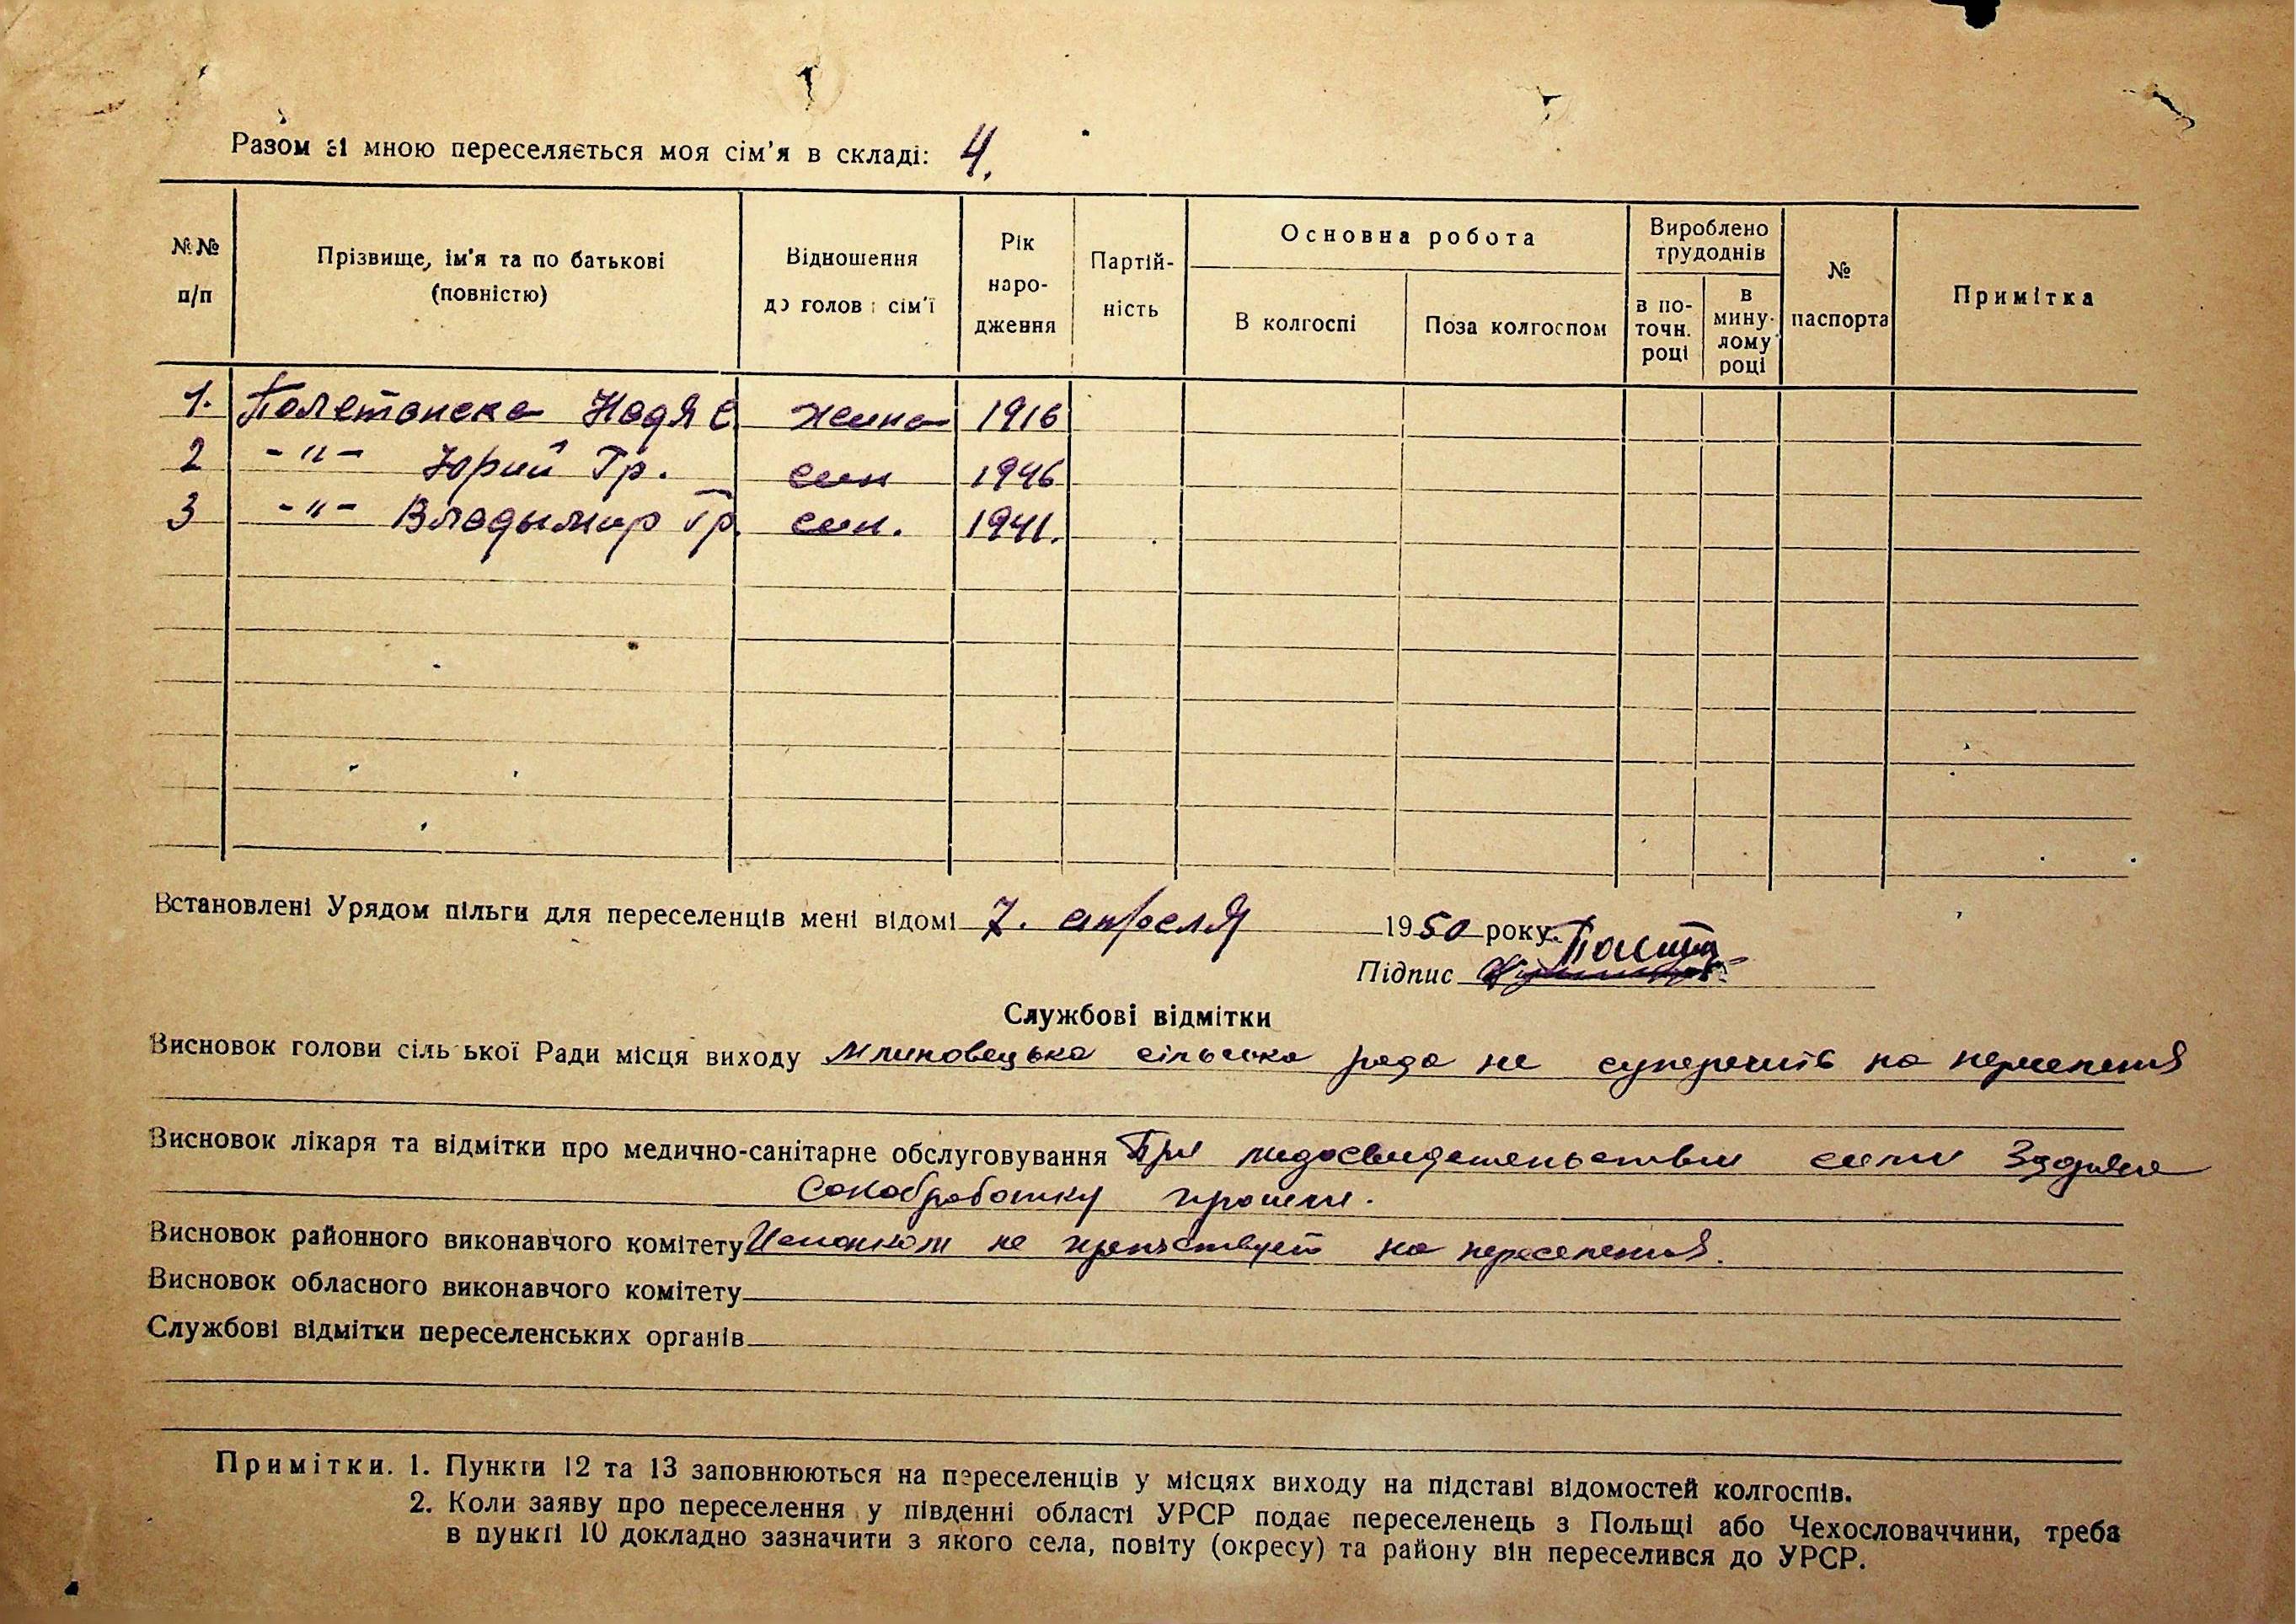 Разом зі мною переселяється моя сім'я в складі: 4.
№№ п/п
Прізвище, ім'я та по батькові (повністю)
Відношення до голови сім'ї
Рік народження
Партійність
Основна робота
В колгоспі
Поза колгоспом
Вироблено трудоднів
в поточн. році
в минулому році
№ паспорта
Примітка
1. Надя С. жина 1916
2 -"- Юрий Гр. син 1946
3 -"- Владымир Гр. син. 1941.
Встановлені Урядом пільги для переселенців мені відомі 7. апреля 1950 року.
Підпис
Службові відмітки
Висновок голови сільської Ради місця виходу Млиновецька сільська рада не суперечить на переселения
Висновок лікаря та відмітки про медично-санітарне обслуговування При
Санобработку прошли.
Висновок районного виконавчого комітету Исполком не на переселения.
Висновок обласного виконавчого комітету
Службові відмітки переселенських органів
Примітки. 1. Пункти 12 та 13 заповнюються на переселенців у місцях виходу на підставі відомостей колгоспів.
2. Коли заяву про переселення у південні області УРСР подає переселенець з Польщі або Чехословаччини, треба
в пункті 10 докладно зазначити з якого села, повіту (окресу) та району він переселився до УРСР.